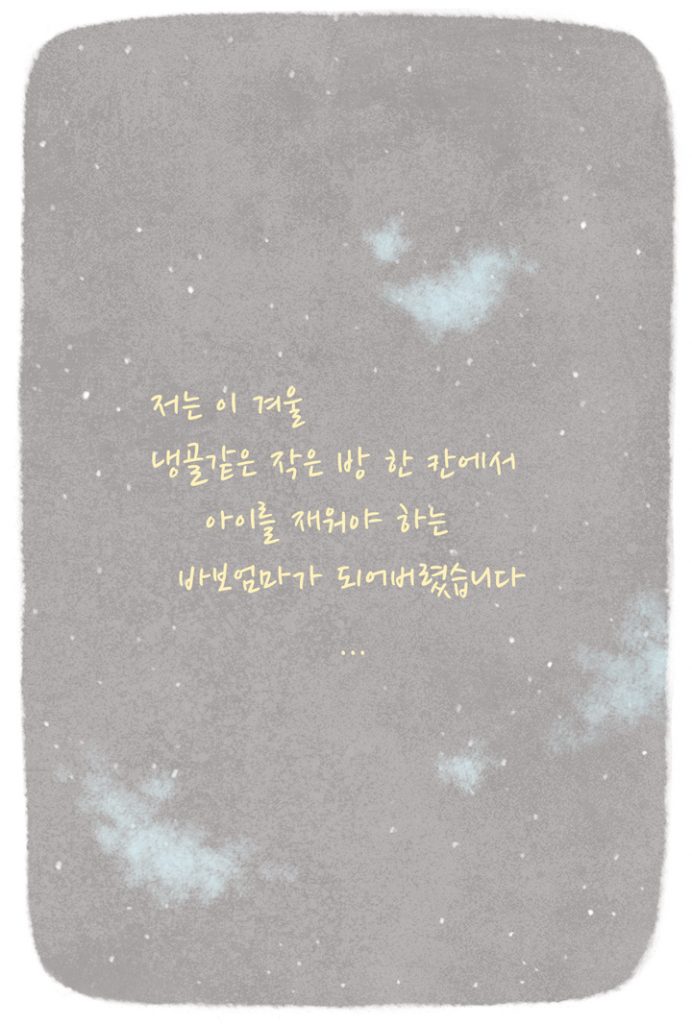 저는 이 겨울
냉골같은 작은 방 한 칸에서
아이를 재워야 하는
바보엄마가 되어버렸습니다
...